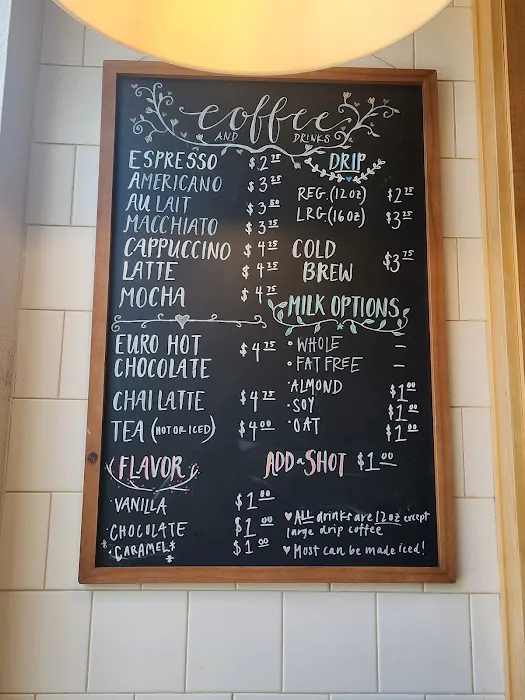 coffee
AND DRINKS
ESPRESSO $2.25
AMERICANO $3.25
AU LAIT $3.50
MACCHIATO $3.75
CAPPUCCINO $4.25
LATTE $4.25
MOCHA $4.75
DRIP
REG. (12 OZ) $2.75
LRG. (16 OZ) $3.25
COLD
BREW $3.75
MILK OPTIONS
• WHOLE –
• FAT FREE –
• ALMOND $1.00
• SOY $1.00
• OAT $1.00
EURO HOT
CHOCOLATE $4.25
CHAI LATTE $4.75
TEA (HOT OR ICED) $4.00
FLAVOR
• VANILLA $1.00
• CHOCOLATE $1.00
• CARAMEL* $1.00
ADD a SHOT $1.00
♥ ALL drinks are 12 oz except
large drip coffee
♥ Most can be made iced!